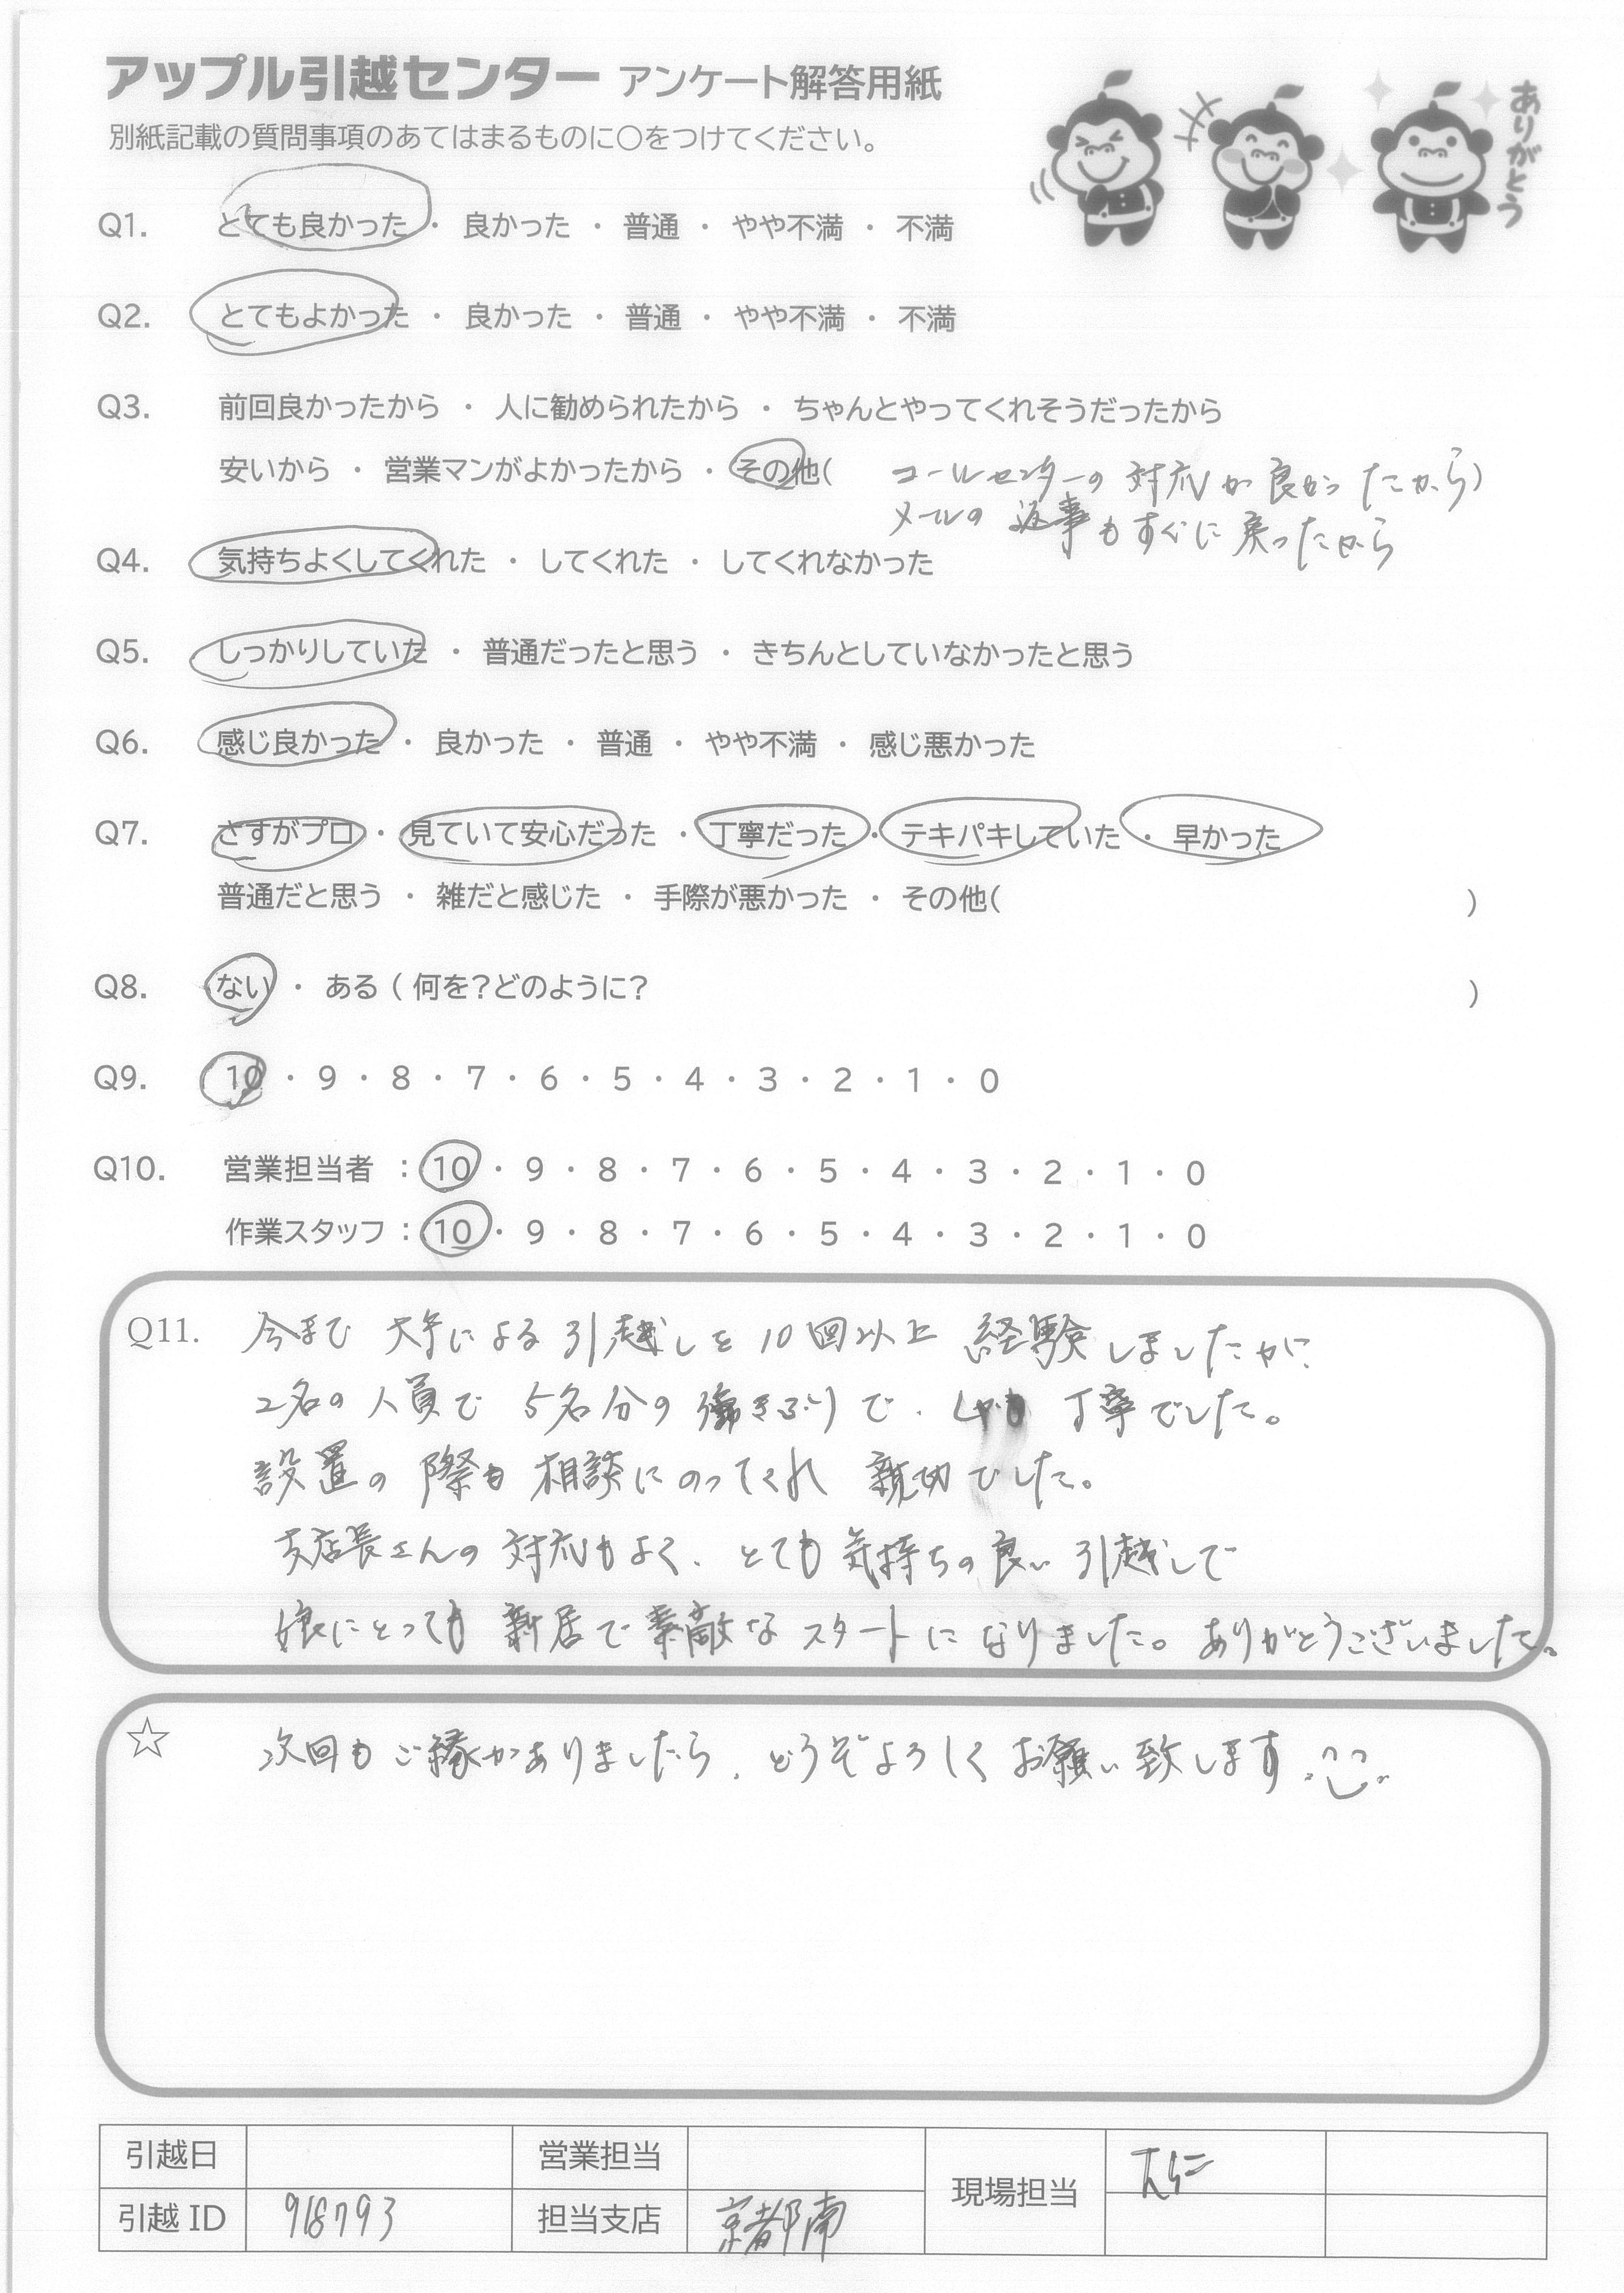 アップル引越センター アンケート解答用紙
別紙記載の質問事項のあてはまるものに〇をつけてください。
ありがとう
Q1. とても良かった ・ 良かった ・ 普通 ・ やや不満 ・ 不満
Q2. とてもよかった ・ 良かった ・ 普通 ・ やや不満 ・ 不満
Q3. 前回良かったから ・ 人に勧められたから ・ ちゃんとやってくれそうだったから
安いから ・ 営業マンがよかったから ・ その他( コールセンターの対応が良かったから)
メールの返事もすぐに戻ったから
Q4. 気持ちよくしてくれた ・ してくれた ・ してくれなかった
Q5. しっかりしていた ・ 普通だったと思う ・ きちんとしていなかったと思う
Q6. 感じ良かった ・ 良かった ・ 普通 ・ やや不満 ・ 感じ悪かった
Q7. さすがプロ ・ 見ていて安心だった ・ 丁寧だった ・ テキパキしていた ・ 早かった
普通だと思う ・ 雑だと感じた ・ 手際が悪かった ・ その他( )
Q8. ない ・ ある ( 何を?どのように? )
Q9. 10 ・ 9 ・ 8 ・ 7 ・ 6 ・ 5 ・ 4 ・ 3 ・ 2 ・ 1 ・ 0
Q10. 営業担当者 : 10 ・ 9 ・ 8 ・ 7 ・ 6 ・ 5 ・ 4 ・ 3 ・ 2 ・ 1 ・ 0
作業スタッフ : 10 ・ 9 ・ 8 ・ 7 ・ 6 ・ 5 ・ 4 ・ 3 ・ 2 ・ 1 ・ 0
Q11. 今まで大手による引越しを10回以上経験しましたが、
2名の人員で5名分の働きぶりで、しかも丁寧でした。
設置の際も相談にのってくれ親切でした。
支店長さんの対応もよく、とても気持ちの良い引越しで
娘にとっても新居で素敵なスタートになりました。ありがとうございました。
☆ 次回もご縁がありましたら、どうぞよろしくお願い致します
引越日 営業担当 現場担当
引越 ID 918793 担当支店 京都南